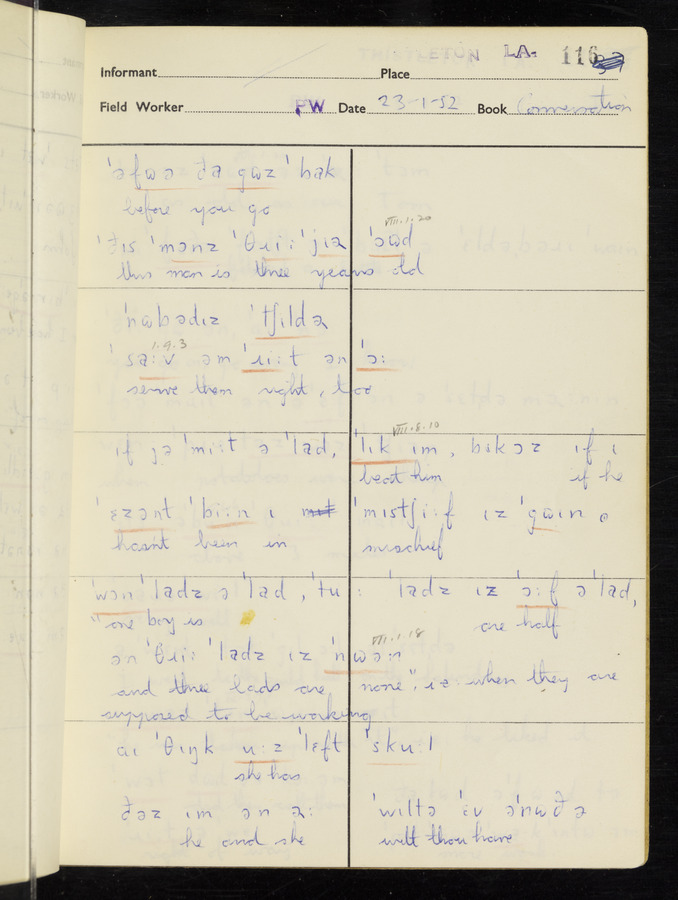 THISTLETON LA. 116
Informant Place
Field Worker PW Date 23-1-52 Book Conversation
ˈəfwə ða gwz ˈbak
before you go
VIII.1.20
ˈðɪs ˈmənz ˈθɹiːˈjɪə ˈɔwd
this man is three years old
ˈnɷbədɪz ˈtʃɪldə
1.9.3
ˈsaːv əm ˈɹiːt ən ˈəː
serve them right, too
VIII.8.10
ɪf jə ˈmiːt ə ˈlad, ˈlɪk ɪm, bɪkɔz ɪf ɪ
beat him if he
ˈɛzənt ˈbiːn ɪ ˈmɪstʃiːf ɪz ˈgɷɪn ə
hasn't been in mischief
ˈwən ˈladz ə ˈlad, ˈtuː ˈladz ɪz ˈɔːf ə ˈlad,
"one boy is are half
VIII.1.18
ən ˈθɹiː ˈladz ɪz ˈnwən
and three lads are none", i.e. when they are
supposed to be working
aɪ ˈθɪŋk uːz ˈlɛft ˈskuːl
she has
ðəz ɪm ən əː ˈwɪltə ˈɛv əˈnɷðə
he and she wilt thou have